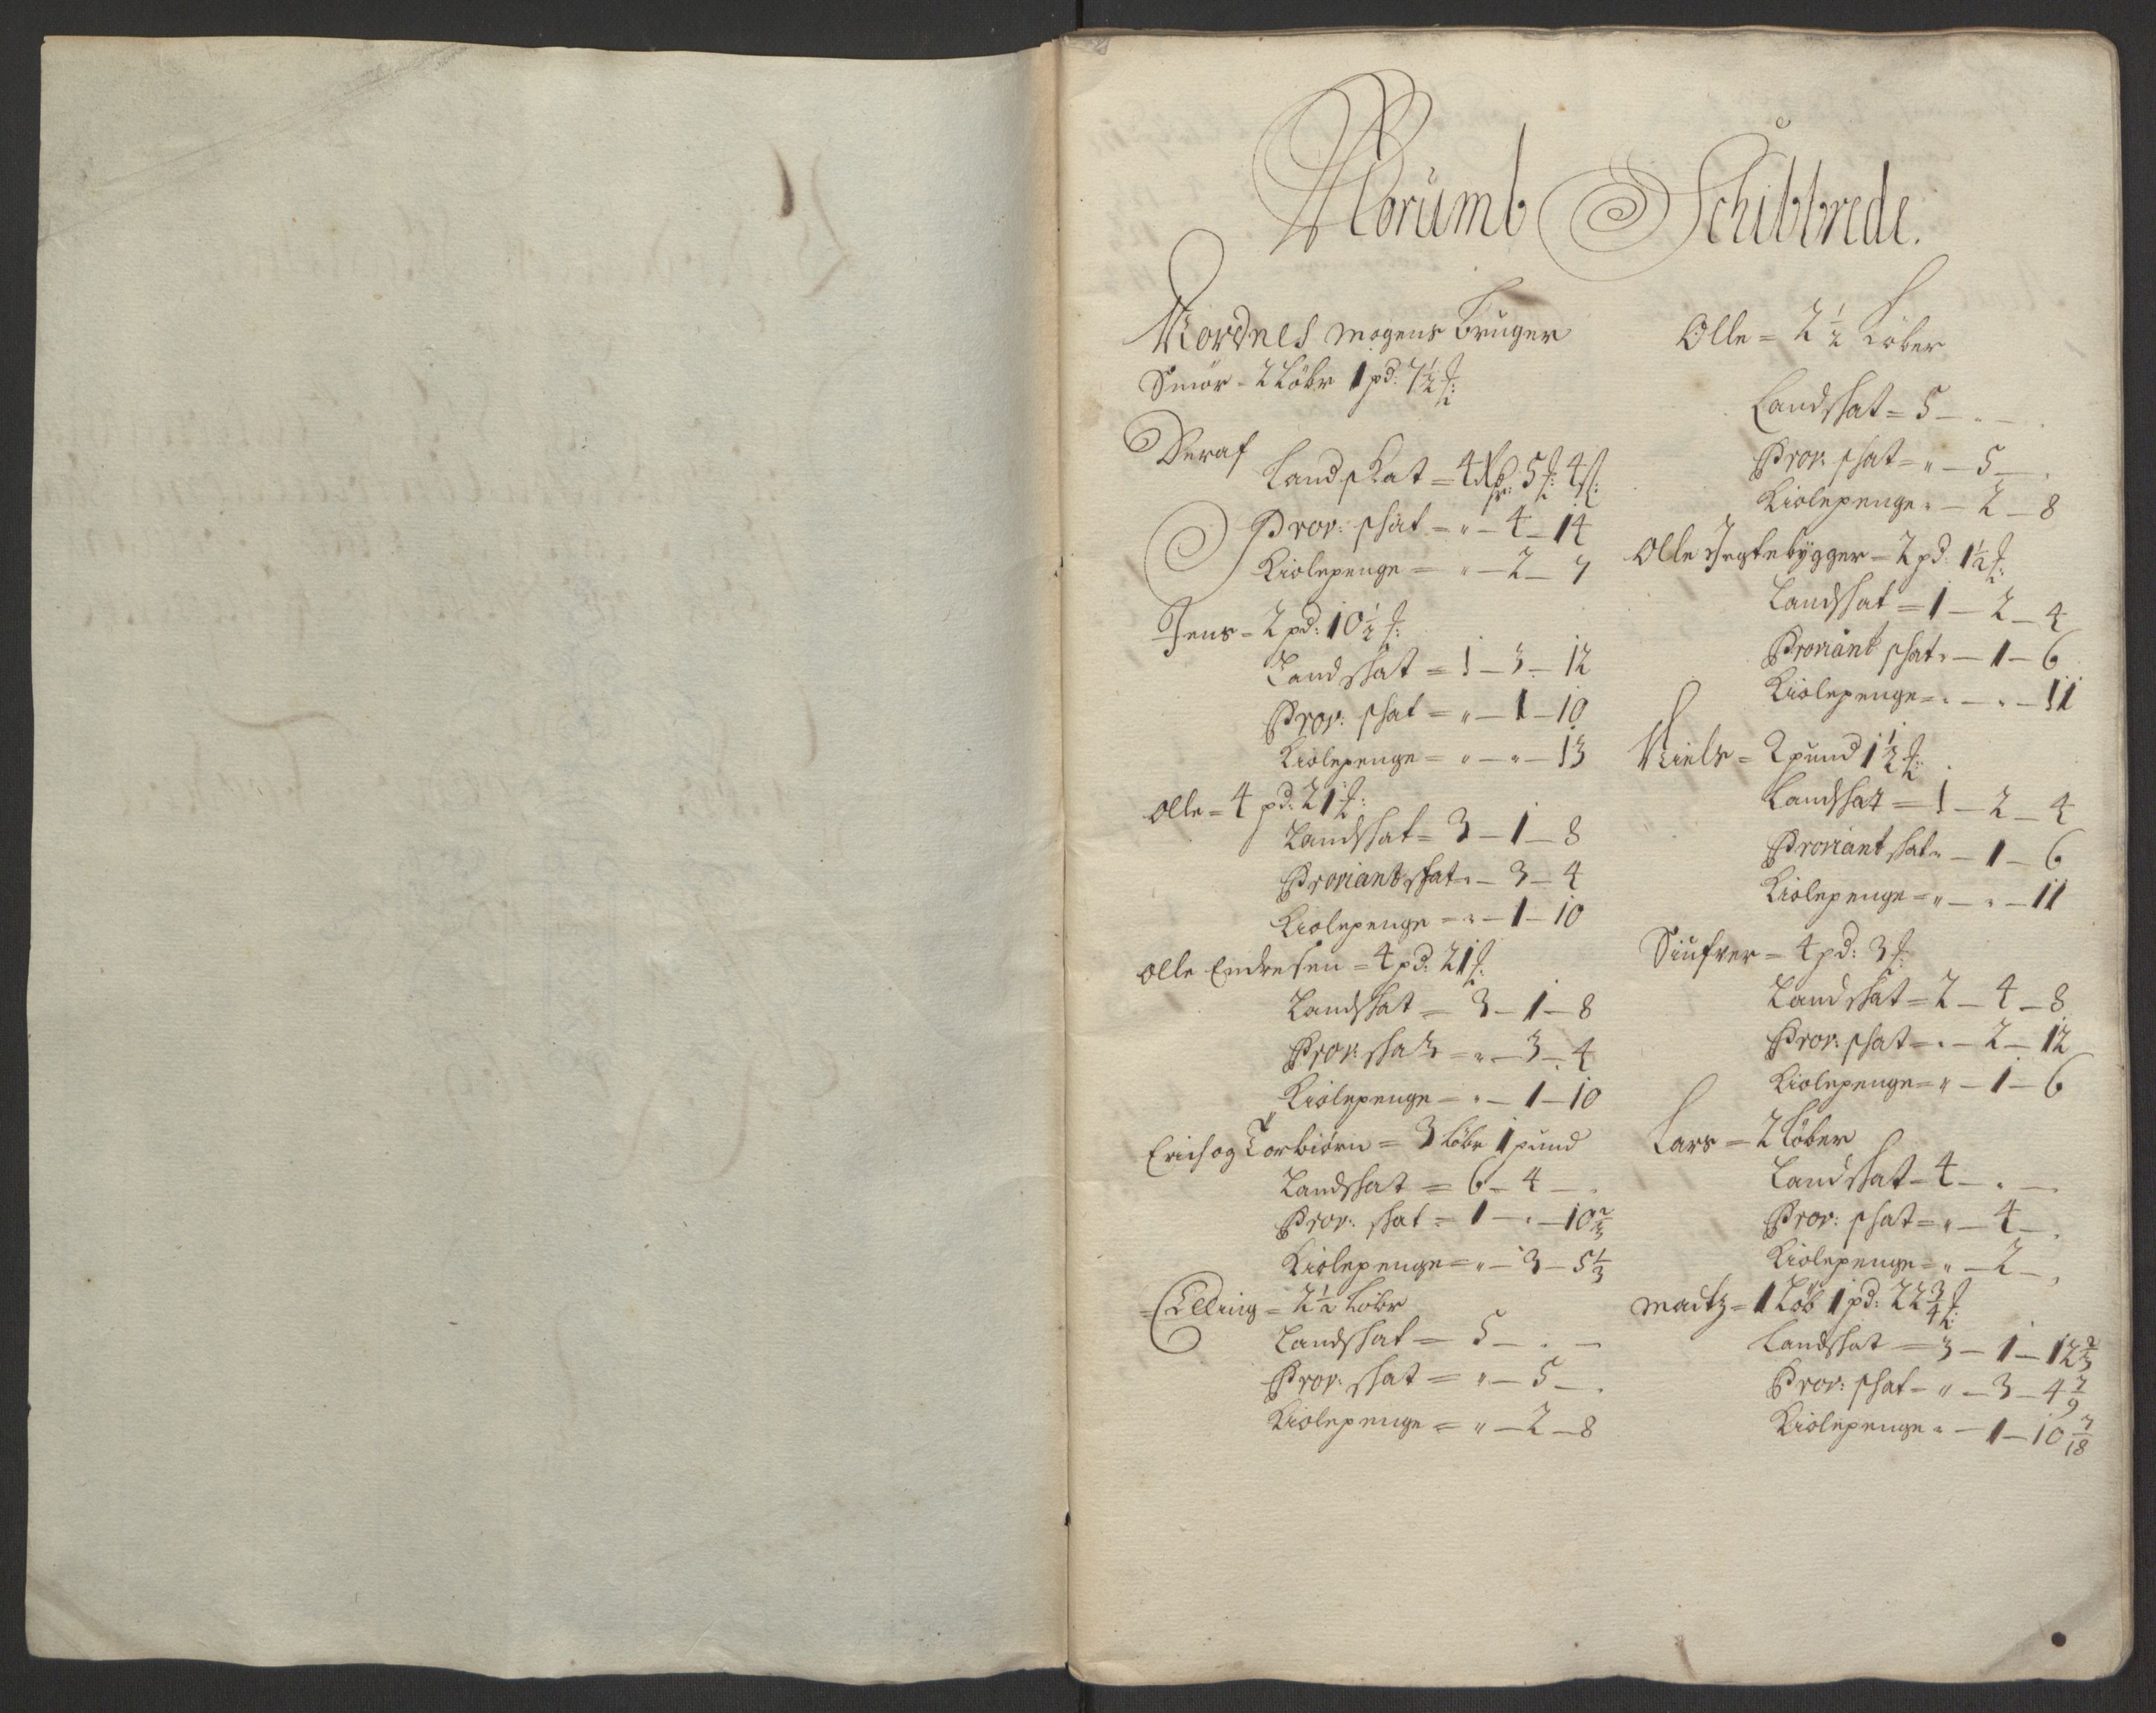 Norumb Schibbrede.
Nordnes mogens bruger
Smör - 2 Löbr 1 pd: 7½ ℔:
Deraf
Landskat = 4 Rdr: 5 ℔: 4 ß:
Prov: skat = " - 4 - 14
Kiolepenge = " - 2 - 7
Jens - 2 pd: 10½ ℔:
Landskat = 1 - 3 - 12
Prov: skat = " - 1 - 10
Kiolepenge = " - " - 13
Olle = 4 pd: 21 ℔:
Landskat = 3 - 1 - 8
Proviantskat " - 3 - 4
Kiolepenge = " - 1 - 10
Olle Endresen = 4 pd: 21 ℔:
Landskat = 3 - 1 - 8
Prov: skat = " - 3 - 4
Kiolepenge = " - 1 - 10
Erich og Torbiörn = 3 Löbr 1 pund
Landskat = 6 - 4 - .
Prov: skat = 1 - " - 10⅔
Kiolepenge = " - 3 - 5⅓
Elling = 2½ Löbr
Landskat = 5 - . -
Prov: skat = " - 5 - .
Kiolepenge = " - 2 - 8
Olle = 2½ Löber
Landskat = 5 - . - .
Prov: skat = " - 5 - .
Kiolepenge " - 2 - 8
Olle Jegtebÿgger - 2 pd: 1½ ℔:
Landskat = 1 - 2 - 4
Proviant skat " - 1 - 6
Kiolepenge = " - " - 11
Niels = 2 pund 1½ ℔:
Landskat = 1 - 2 - 4
Proviant skat " - 1 - 6
Kiolepenge = " - " - 11
Siufver = 4 pd: 3 ℔:
Landskat = 2 - 4 - 8
Prov: skat = " - 2 - 12
Kiolepenge = " - 1 - 6
Lars = 2 Löber
Landskat = 4 - . -
Prov: skat = " - 4 - .
Kiolepenge = " - 2 - .
Madtz = 1 Löb 1 pd: 22¾ ℔:
Landskat = 3 - 1 - 12⅔
Prov: skat = " - 3 - 4 7/9
Kiolepenge " - 1 - 10 7/18